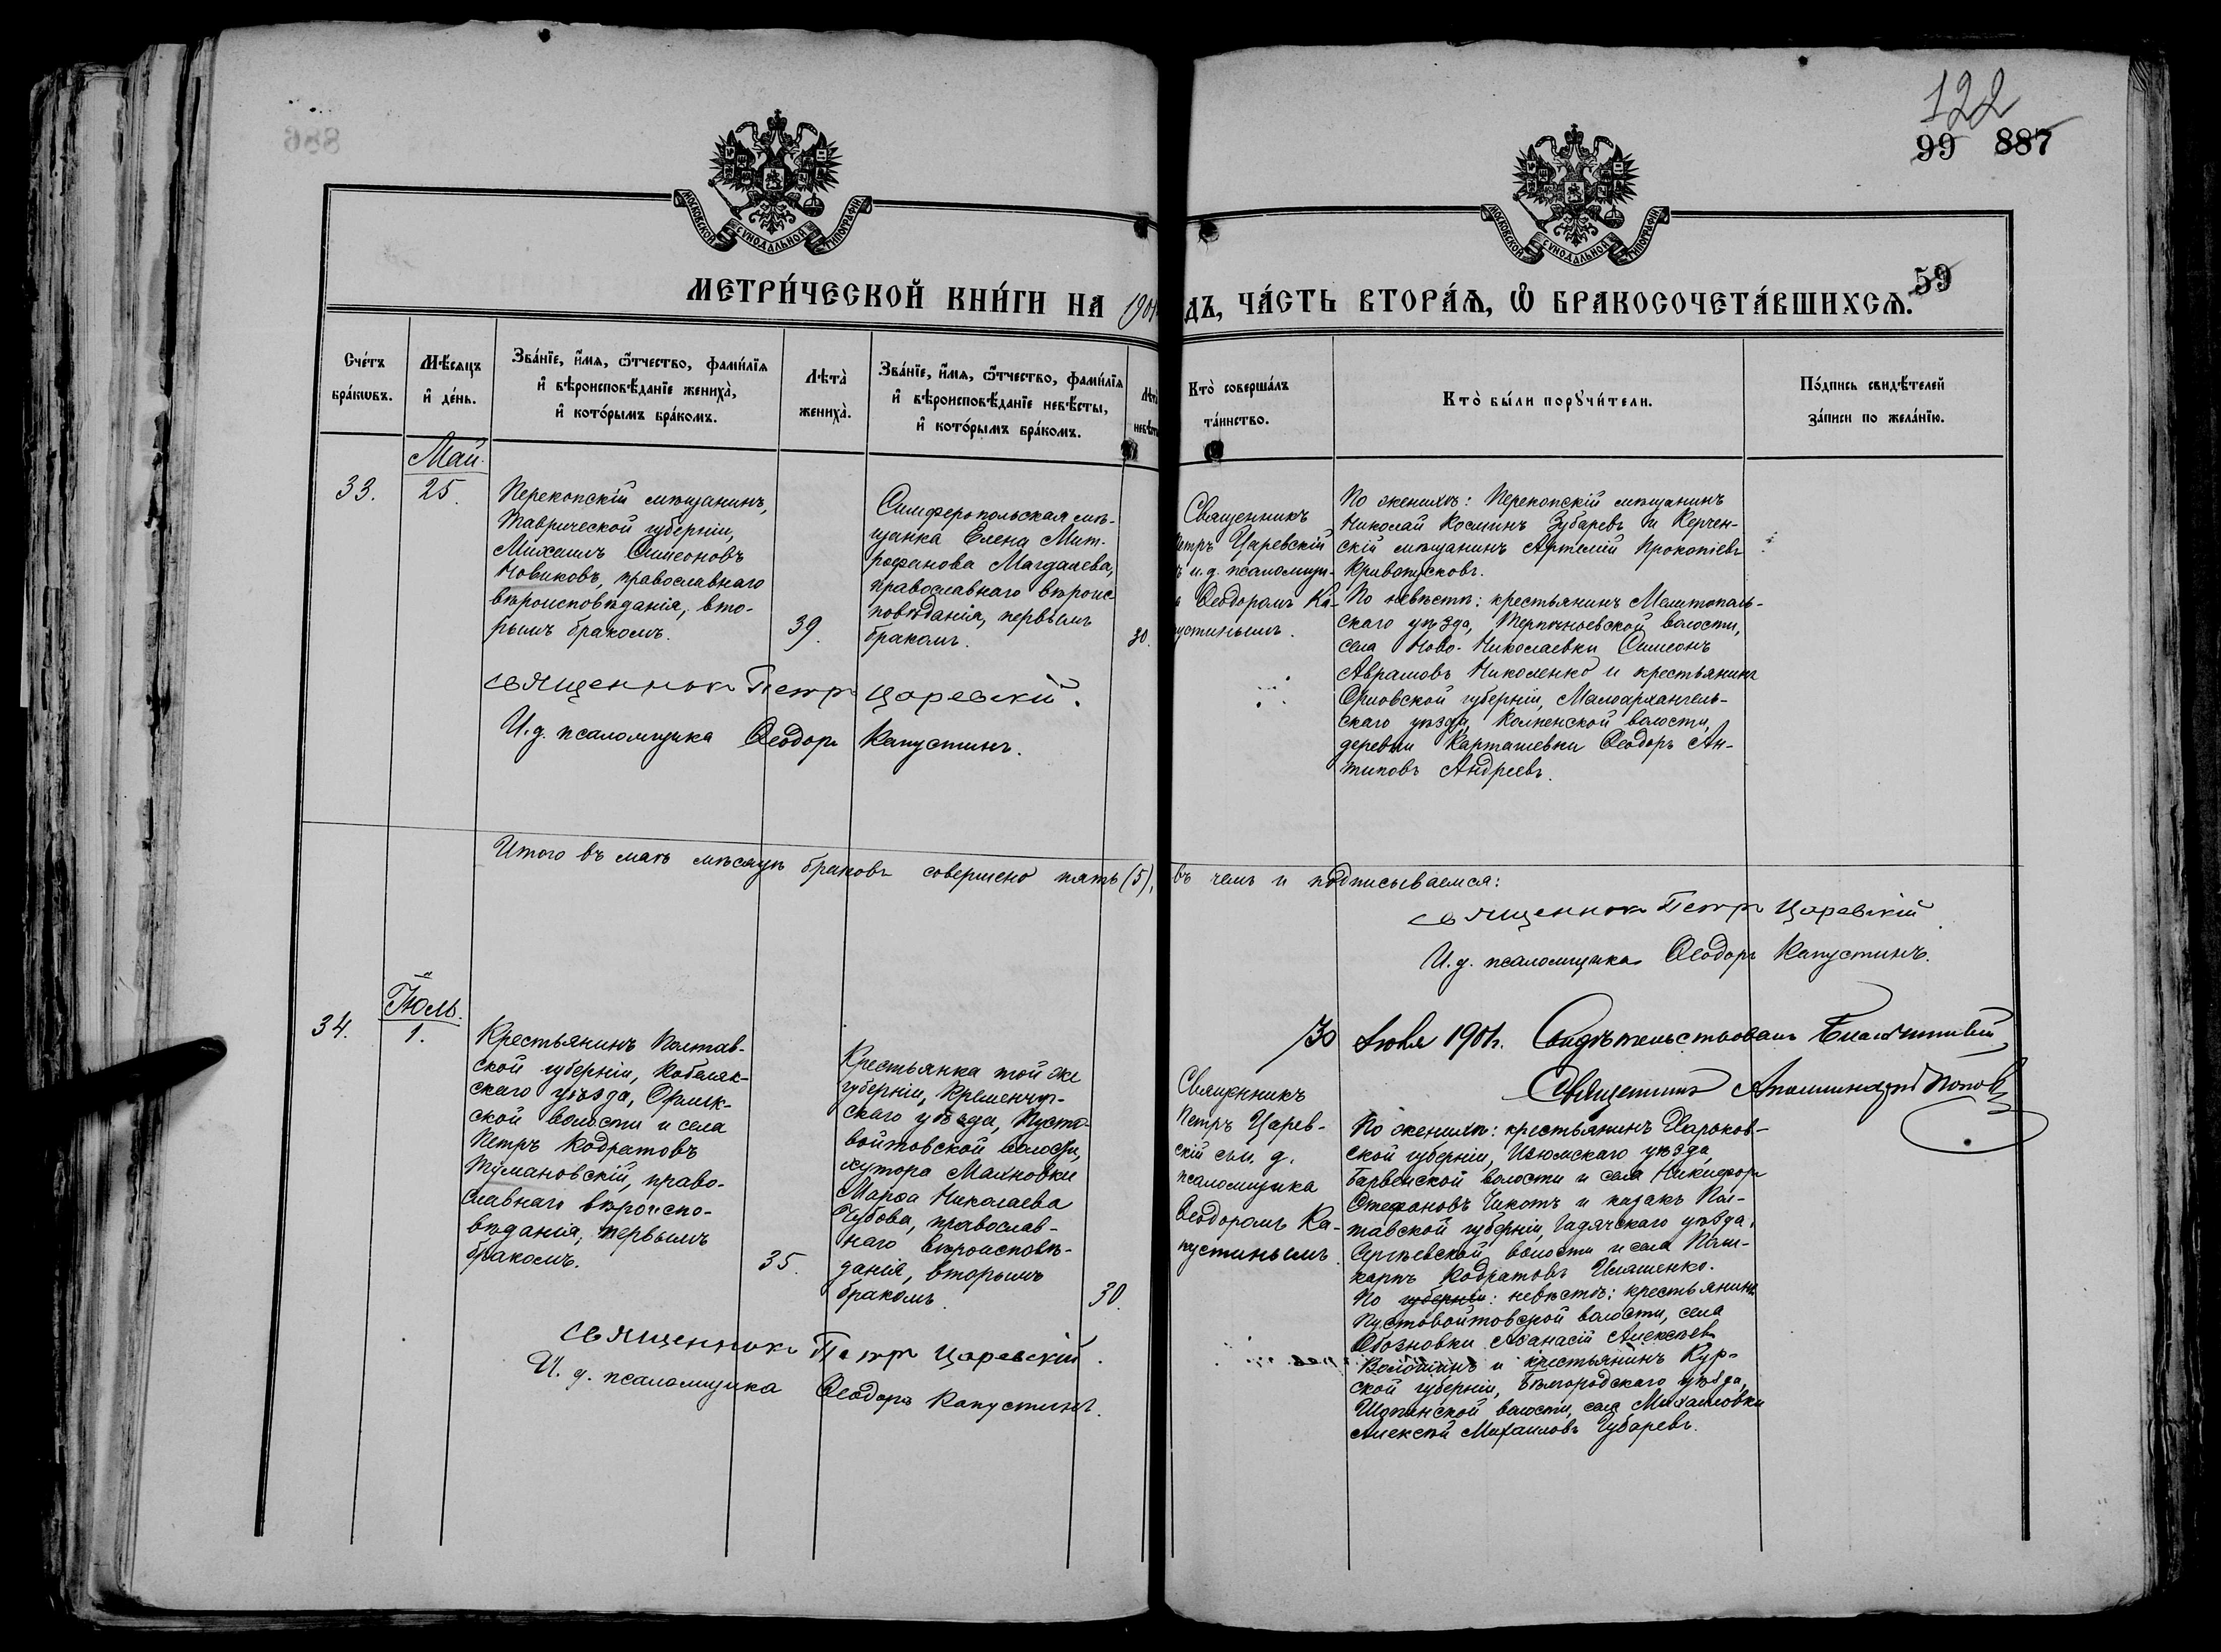 122
99 887
МОСКОВСКОЙ СѴНОДАЛЬНОЙ ТИПОГРАФІИ
МОСКОВСКОЙ СѴНОДАЛЬНОЙ ТИПОГРАФІИ
59
МЕТРИ́ЧЕСКОЙ КНИ́ГИ НА 1901
ДЪ, ЧА́СТЬ ВТОРА́Ѧ, Ѽ БРАКОСОЧЕТА́ВШИХСѦ.
Сче́тъ
бра́кωвъ.
Мѣ́сяцъ
и҆ де́нь.
Зва́нїе, и҆́мя, ѻ҆́тчество, фами́лїя
и҆ вѣроисповѣ́данїе жениха̀,
и҆ кото́рымъ бра́комъ.
Лѣта̀
жениха̀.
Зва́нїе, и҆́мя, ѻ҆́тчество, фами́лїя
и҆ вѣроисповѣ́данїе невѣ́сты,
и҆ кото́рымъ бра́комъ.
Кто̀ соверша́лъ
та́инство.
Кто̀ бы́ли порꙋчи́тели.
По́дпись свидѣ́телей
за́писи по жела́нїю.
Май.
33.
25.
Перекопскій мѣщанинъ,
Таврической губерніи,
Михаилъ Симеоновъ
Новиковъ, православнаго
вѣроисповѣданія, вто-
рымъ бракомъ.
39.
Симферопольская мѣ-
щанка Елена Мит-
рофанова Магдалева,
православнаго вѣроис
повѣданія, первымъ
бракомъ.
30.
Священникъ
Петръ Царевскій
и.д. псаломщи-
Ѳеодоромъ Ка-
устинымъ.
По женихѣ: Перекопскій мѣщанинъ
Николай Косминъ Зубаревъ и Керчен-
скій мѣщанинъ Артемій Прокопіевъ
Кривопусковъ.
По невѣстѣ: крестьянинъ Мелитополь-
скаго уѣзда, Терпѣньевской волости,
села Ново-Николаевки Симеонъ
Аврамовъ Николенко и крестьянинъ
Орловской губерніи, Малоархангель-
скаго уѣзда, Колпенской волости,
деревни Карташевки Ѳеодоръ Ан-
типовъ Андреевъ.
Священникъ Петръ Царевскій.
И.д. псаломщика Ѳеодоръ Капустинъ.
Итого въ маѣ мѣсяцѣ браковъ совершено пять (5), въ чемъ и подписываемся:
Священникъ Петръ Царевскій
И.д. псаломщика Ѳеодоръ Капустинъ.
30 Іюня 1901 г. Свидѣтельствовалъ Благочинный
Священникъ Аполлинарій Поповъ
Іюль.
34.
1.
Крестьянинъ Полтав-
ской губерніи, Кобеляк-
скаго уѣзда, Орлик-
ской волости и села
Петръ Кодратовъ
Тумановскій, право-
славнаго вѣроиспо-
вѣданія, первымъ
бракомъ.
35.
Крестьянка той же
губерніи, Кременчуг-
скаго уѣзда, Пусто-
войтовской волости,
хутора Маяновки
Марѳа Николаева
Чубова, православ-
наго вѣроисповѣ-
данія, вторымъ
бракомъ.
30.
Священникъ
Петръ Царев-
скій съ и. д.
псаломщика
Ѳеодоромъ Ка-
пустинымъ.
По женихѣ: крестьянинъ Харьков-
ской губерніи, Изюмскаго уѣзда,
Барвенской волости и села Никифоръ
Стефановъ Чикотъ и казакъ Пол-
тавской губерніи, Гадячскаго уѣзда,
Сергѣевской волости и села Поли-
карпъ Кодратовъ Ильяшенко.
По губерніи: невѣстѣ: крестьянинъ
Пустовойтовской волости, села
Обозновки Аѳанасій Алексѣевъ
Волошинъ и крестьянинъ Кур-
ской губерніи, Бѣлгородскаго уѣзда,
Шопинской волости, села Михайловки
Алексѣй Михаиловъ Губаревъ.
Священникъ Петръ Царевскій.
И. д. псаломщика Ѳеодоръ Капустинъ.